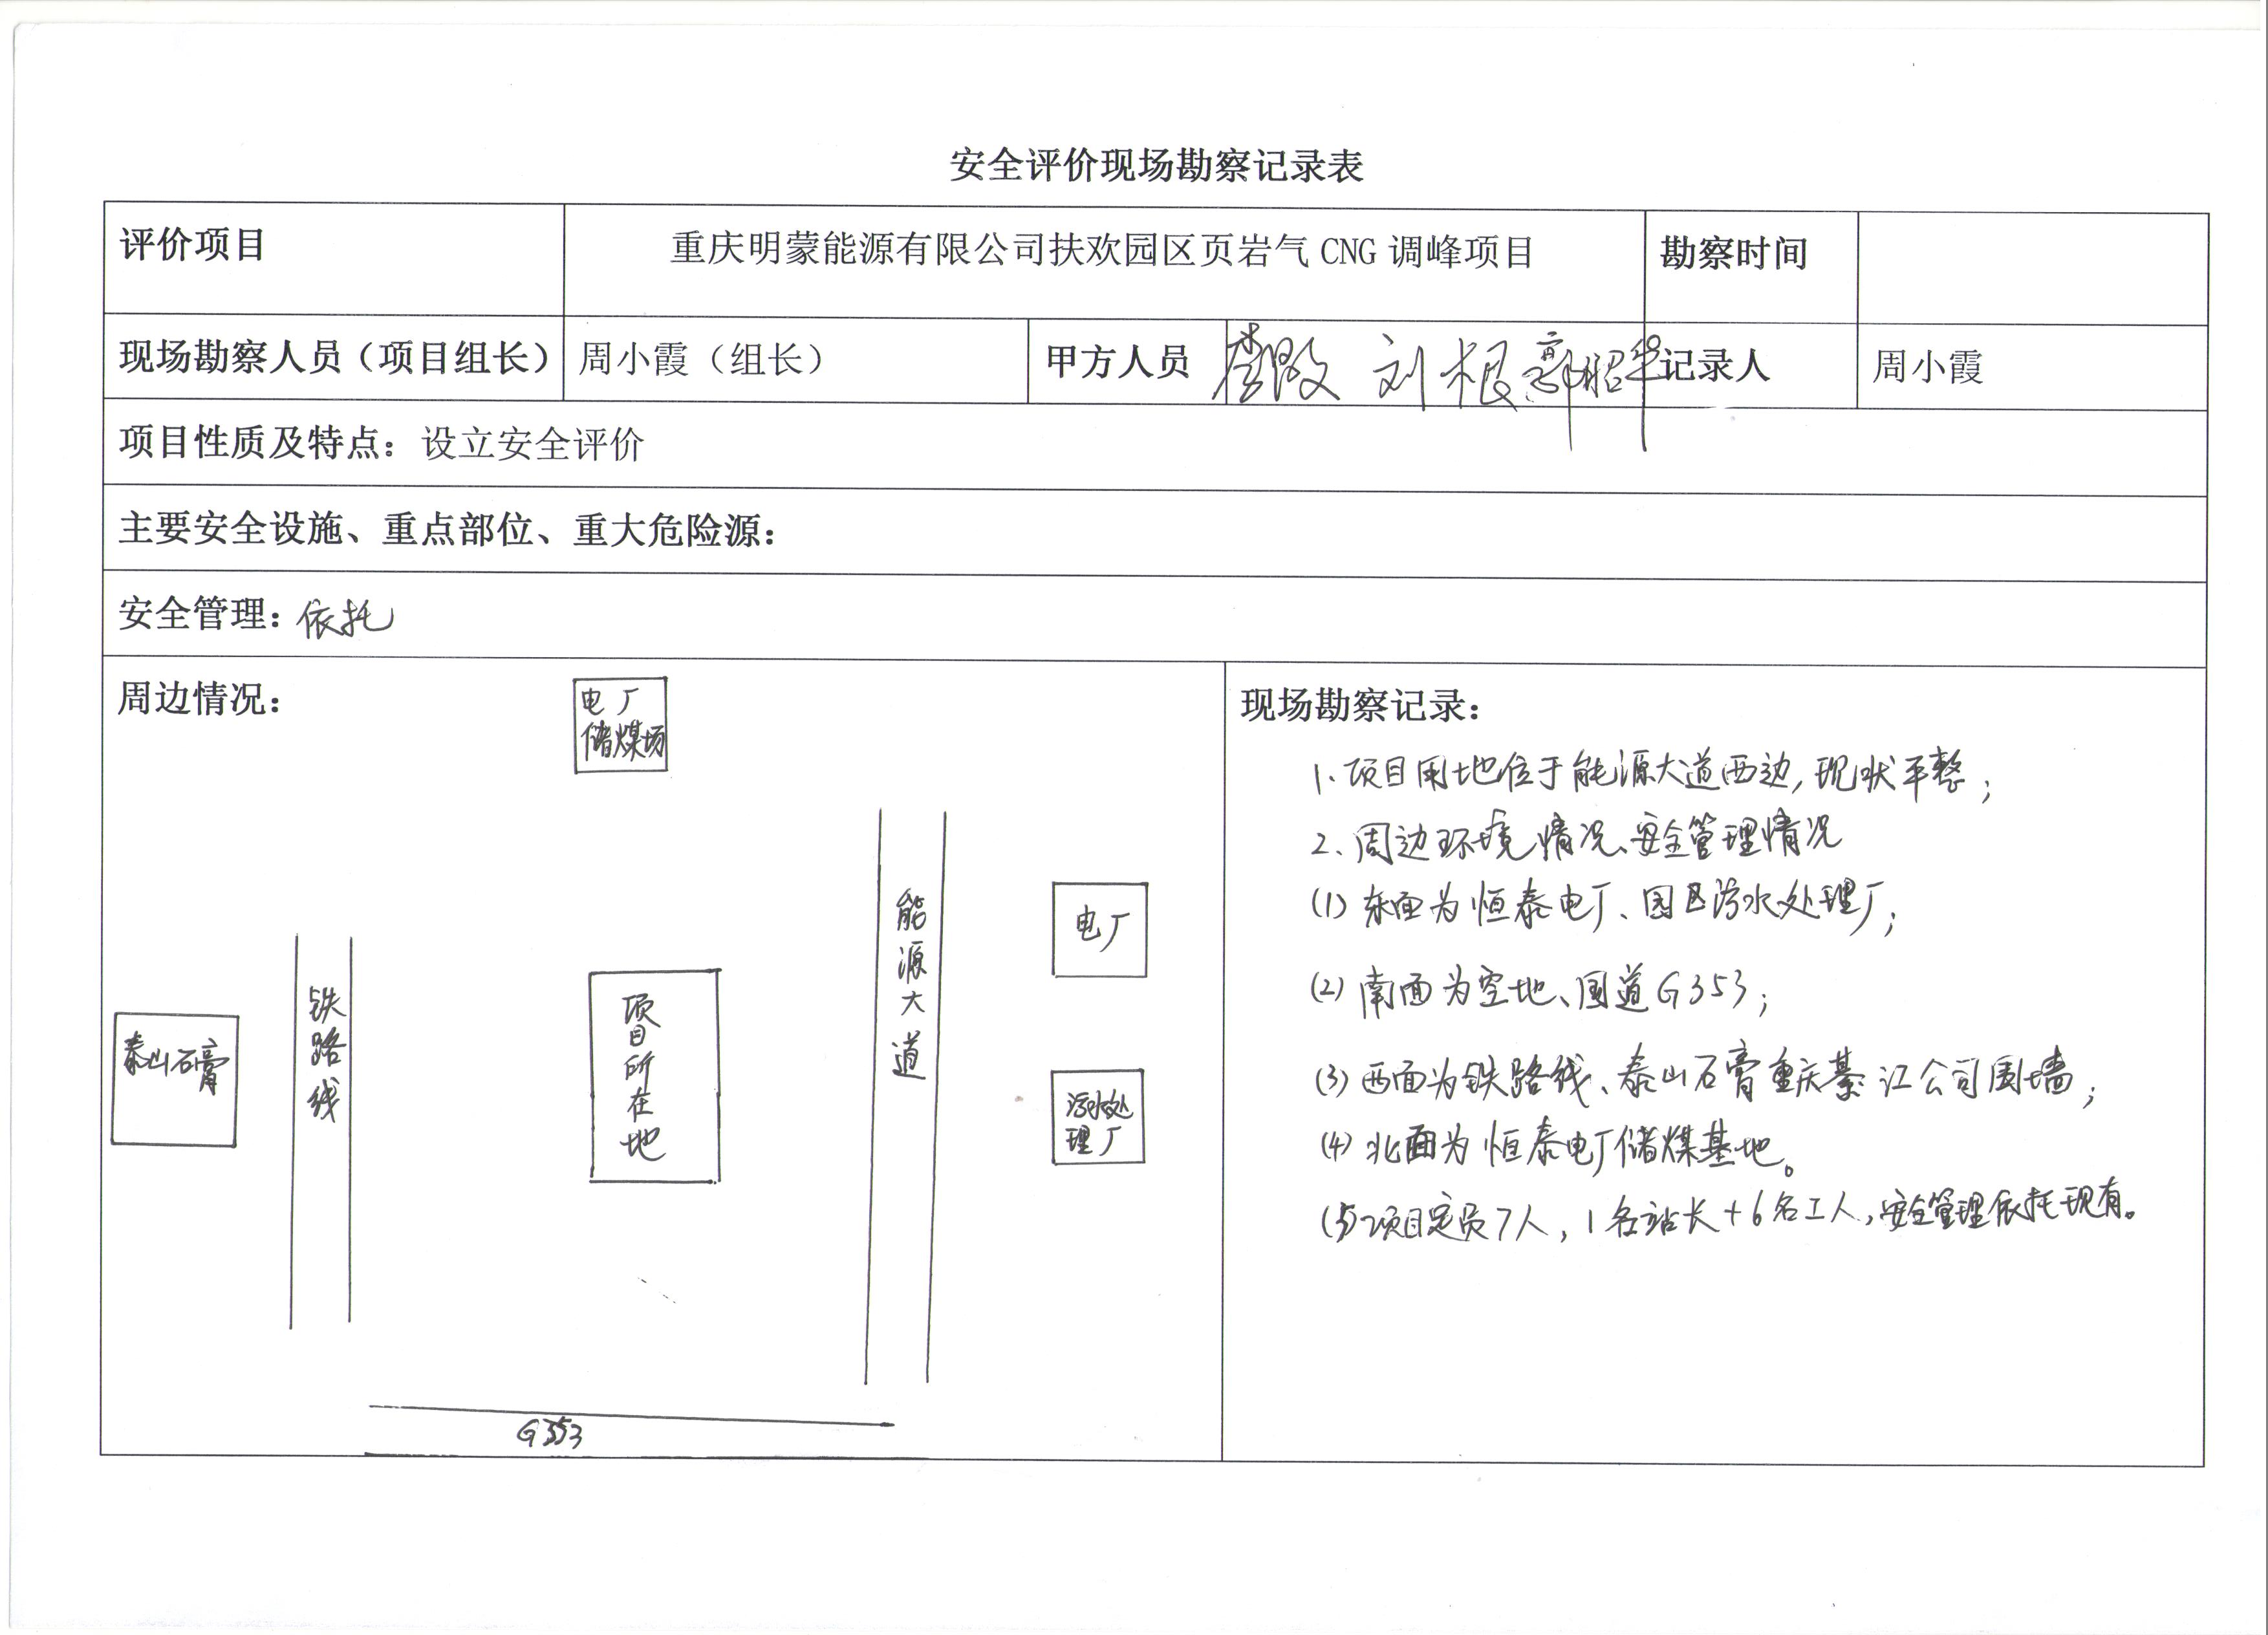 安全评价现场勘察记录表
评价项目 重庆明蒙能源有限公司扶欢园区页岩气 CNG 调峰项目 勘察时间
现场勘察人员（项目组长） 周小霞（组长） 甲方人员 刘根 郭昭华 记录人 周小霞
项目性质及特点：设立安全评价
主要安全设施、重点部位、重大危险源：
安全管理：依托
周边情况：
电厂
储煤场
能源大道
电厂
铁路线
泰山石膏
项目所在地
污水处
理厂
G353
现场勘察记录：
1、项目用地位于能源大道西边，现状平整；
2、周边环境情况、安全管理情况
(1) 东面为恒泰电厂、园区污水处理厂；
(2) 南面为空地、国道G353；
(3) 西面为铁路线、泰山石膏重庆綦江公司围墙；
(4) 北面为恒泰电厂储煤基地。
(5) 项目定员7人，1名站长+6名工人，安全管理依托现有。